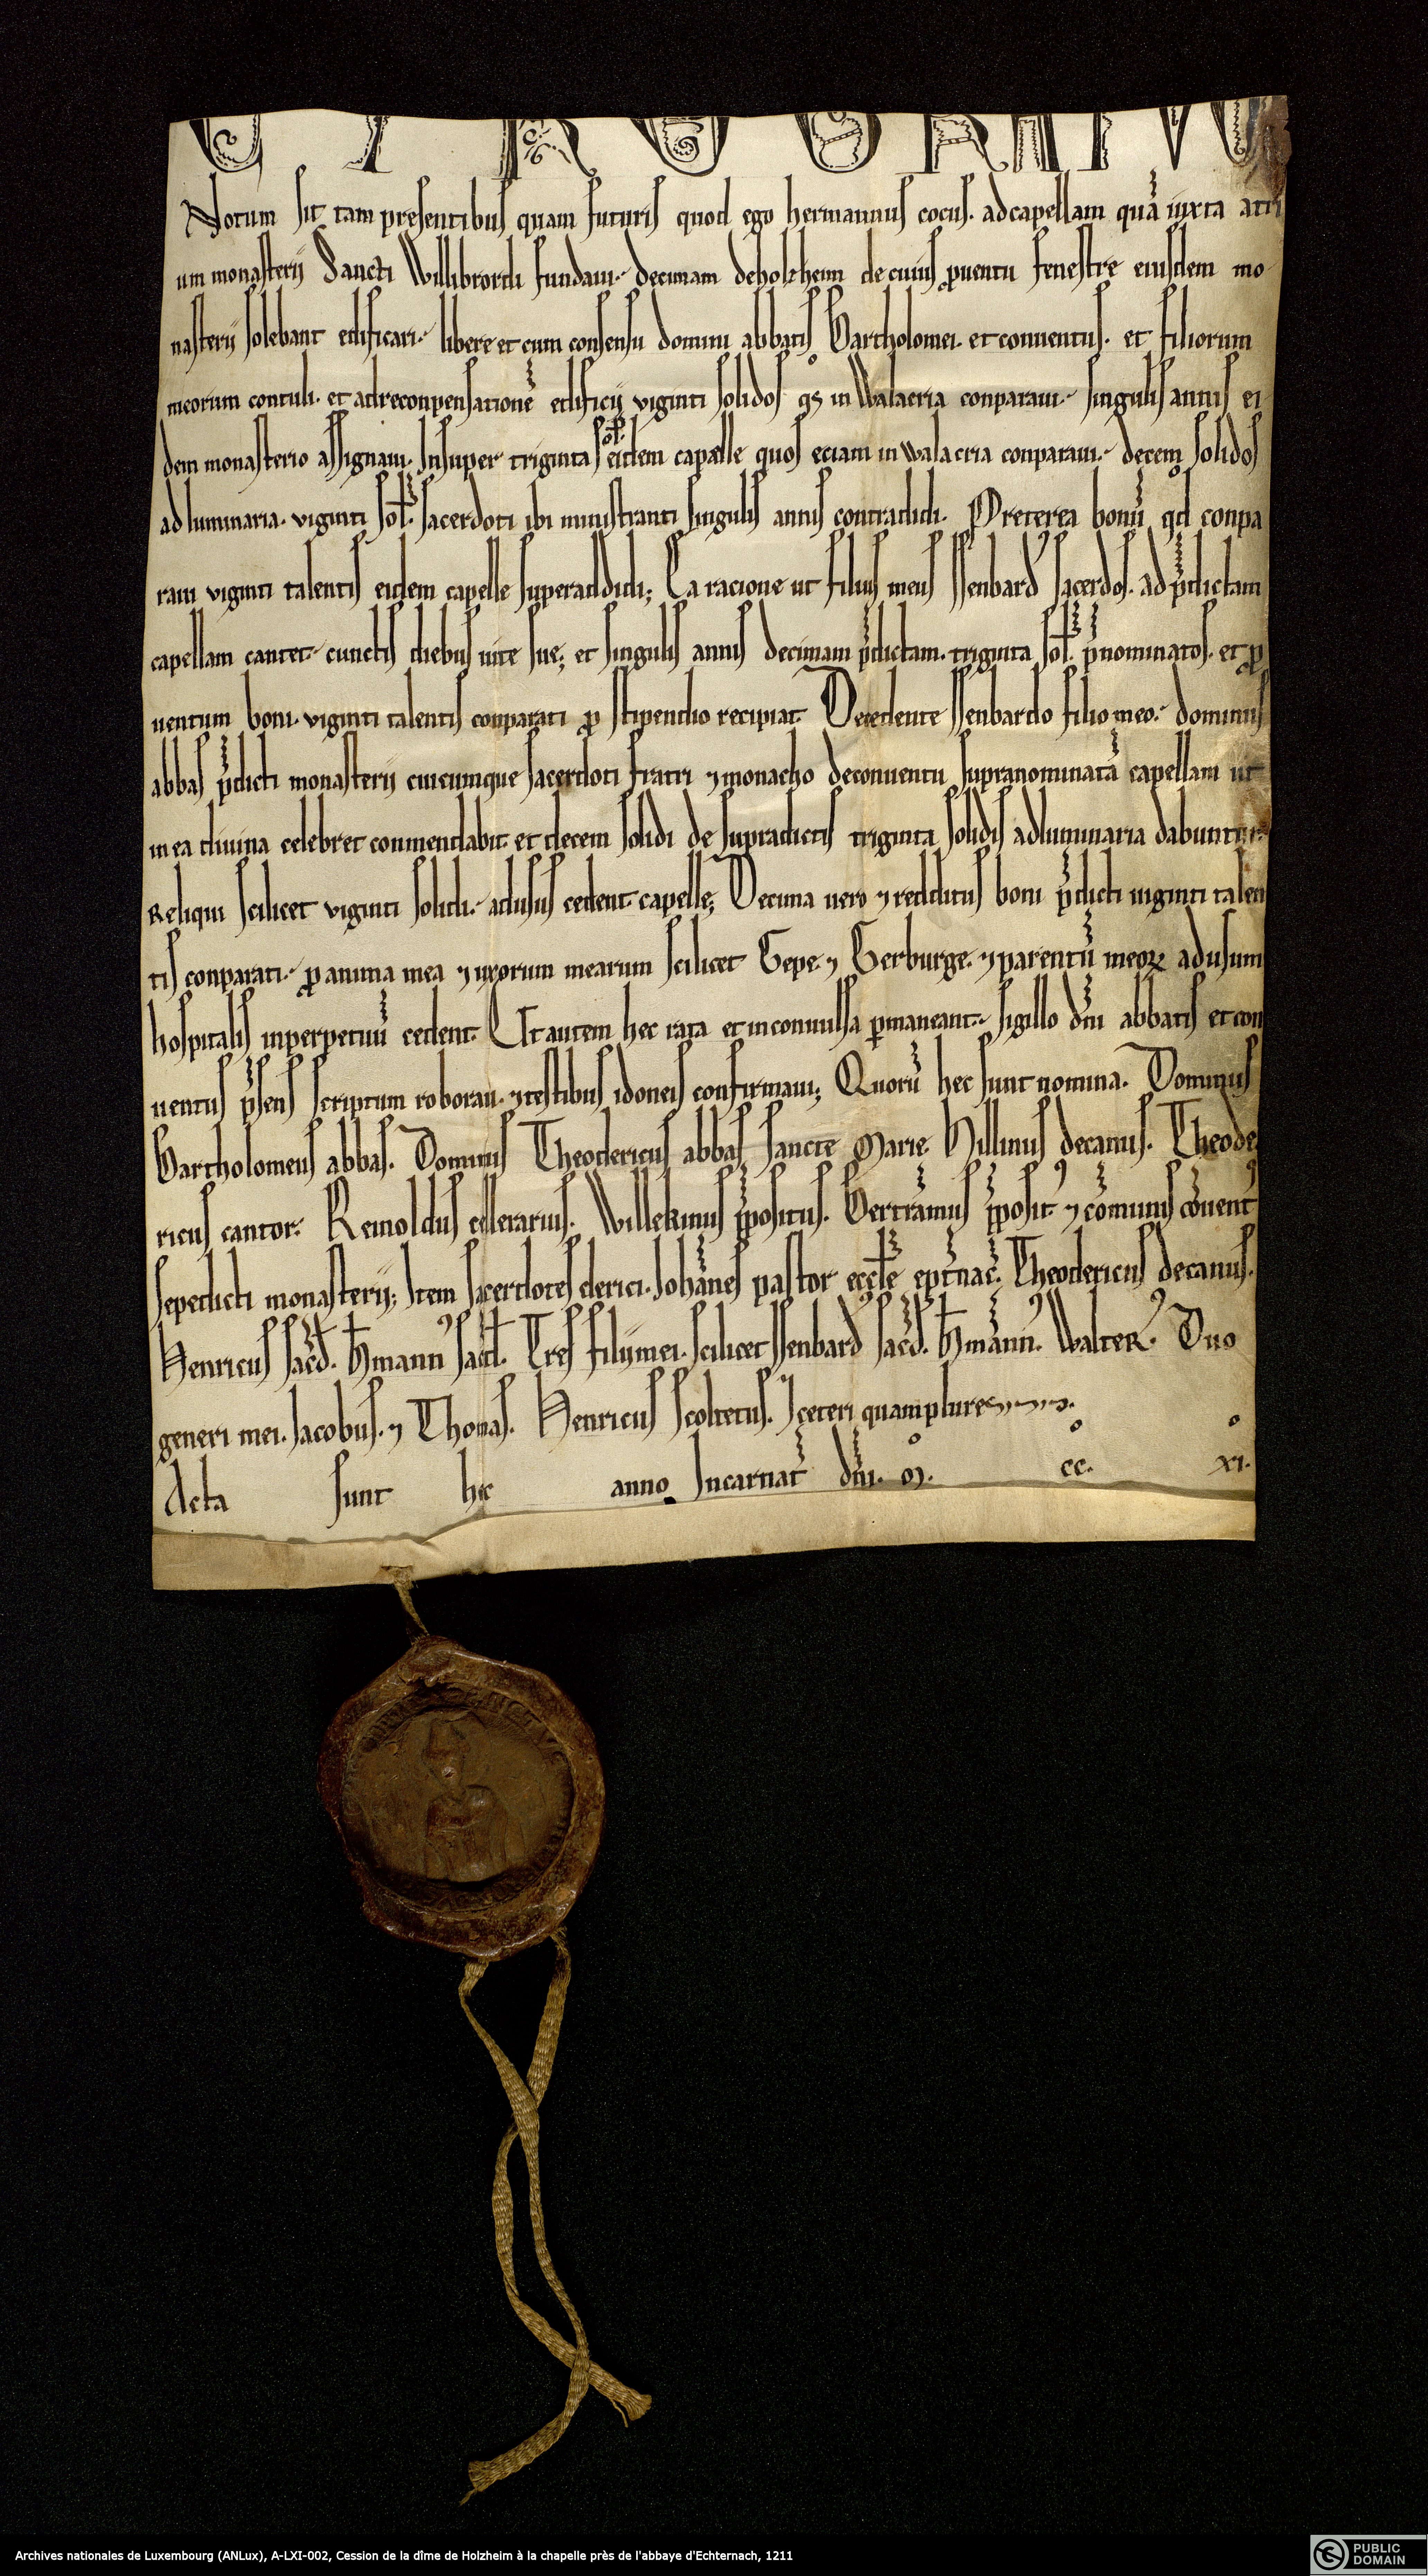 CYROGRAPHV
Notum sit tam presentibus quam futuris quod ego hermannus cocus. ad capellam quā iuxta atri
um monasterij Sancti Willibrordi fundaui. decimam de holzheim de cuius ꝓuentu fenestre eiusdem mo-
nasterij solebant edificari. libere et cum consensu domini abbatis Bartholomei. et conuentus. et filiorum
meorum contuli. et ad reconpensationē edificij viginti solidos qͦs in Walacria conparaui. singulis annis ei-
dem monasterio assignaui. Insuper triginta sol̄. eidem capelle quos eciam in walacria conparaui. decem solidos
ad luminaria. viginti sol̄. sacerdoti ibi ministranti singulis annis contradidi. Preterea bonū qd̄ conpa
raui viginti talentis eidem capelle superaddidi; Ea racione ut filius meus Isenbardꝰ sacerdos. ad p̄dictam
capellam cantet. cunctis diebus uite sue; et singulis annis decimam p̄dictam. triginta sol̄. p̄nominatos. et ꝓ
uentum boni. viginti talentis conparati ꝓ stipendio recipiat. Decedente Isenbardo filio meo. dominus
abbas p̄dicti monasterij cuicumque sacerdoti fratri ⁊ monacho de conuentu supranominatā capellam ut
in ea diuina celebret conmendabit. et decem solidi de supradictis triginta solidis ad luminaria dabuntur.
Reliqui scilicet viginti solidi. ad usus cedent capelle; Decima uero ⁊ redditus boni p̄dicti uiginti talen
tis conparati. ꝓ anima mea ⁊ uxorum mearum scilicet Gepe. ⁊ Gerburge. ⁊ parentū meoꝝ ad usum
hospitalis inperpetuū cedent. Ut autem hec rata et inconuulsa ꝑmaneant. sigillo dn̄i abbatis et con
uentus p̄sens scriptum roboraui. ⁊ testibus idoneis confirmaui; Quorū hec sunt nomina. Dominus
Bartholomeus abbas. Dominus Theodericus abbas sancte Marie. Hillinus decanus. Theode
ricus cantor. Reinoldus cellerarius. Willekinus p̄positus. Bertrāmus p̄positꝰ ⁊ cōmunis cōuentꝰ
sepedicti monasterij; Item sacerdotes clerici. Johānes pastor eccl̄e ept̄nac̄. Theodericus decanus.
Henricus sac̄d. H̄mannꝰ sac̄d. Tres filij mei. scilicet Isenbardꝰ sac̄d. H̄mānnꝰ. Walterꝰ. Duo
generi mei. Jacobus. ⁊ Thomas. Henricus scoltetus. ⁊ ceteri quamplures.
Acta sunt hec anno Incarnat̄ dn̄i. Mͦ. ccͦ. xiͦ.
Archives nationales de Luxembourg (ANLux), A-LXI-002, Cession de la dîme de Holzheim à la chapelle près de l'abbaye d'Echternach, 1211
PUBLIC
DOMAIN